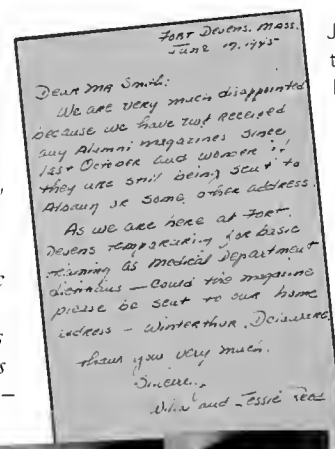 FORT DEVENS. MASS.
June 17, 1945
Dear Mr Smith:
We are very much disappointed
because we have not received
any Alumni magazines since
last October and wonder if
they are still being sent to
Albany or some other address.
As we are here at Fort
Devens temporarily for basic
training as medical Department
dietitians — could the magazine
please be sent to our home
address - Winterthur, Delaware.
Thank you very much.
Sincerely,
and Jessie